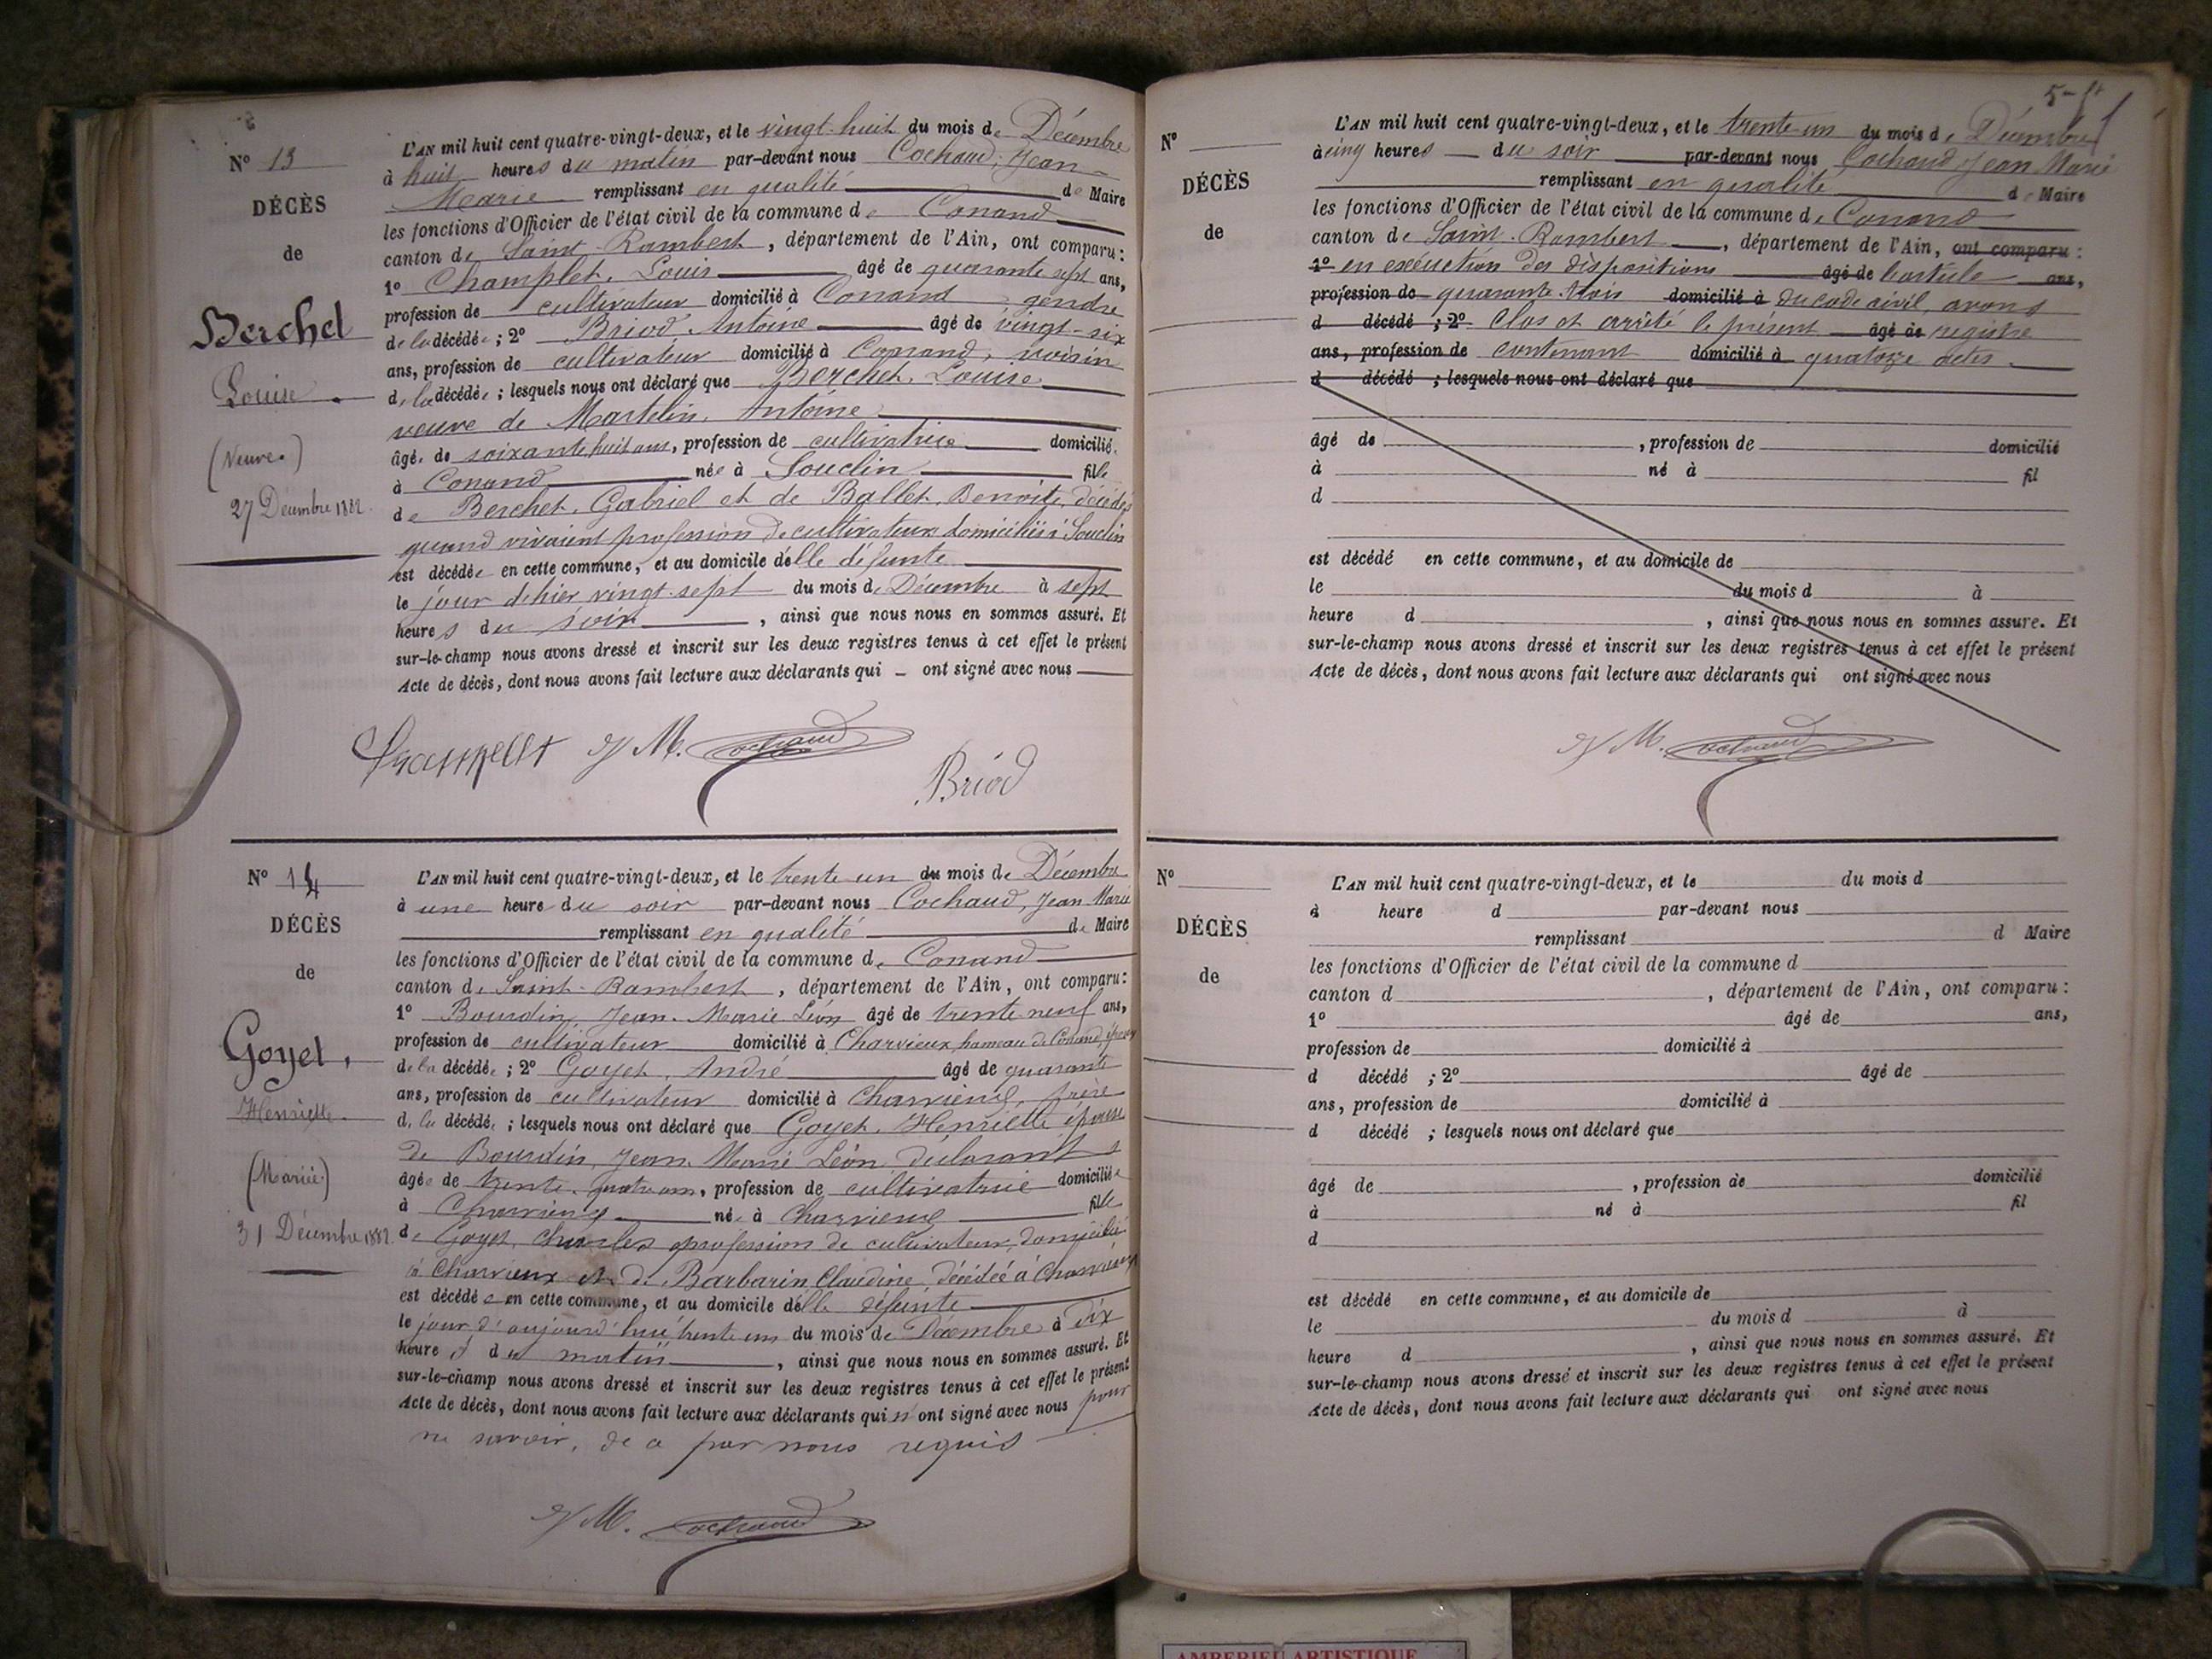 N° 13
DÉCÈS
de
Berchet
Louise
(Veuve)
27 Décembre 1882.
L'AN mil huit cent quatre-vingt-deux, et le vingt-huit du mois de Décembre
à huit heures du matin par-devant nous Cochaud, Jean-
Marie remplissant en qualité de Maire
les fonctions d'Officier de l'état civil de la commune de Conand
canton de Saint-Rambert, département de l'Ain, ont comparu :
1° Champlet, Louis âgé de quarante sept ans,
profession de cultivateur domicilié à Conand gendre
de la décédée ; 2° Briod Antoine âgé de vingt-six
ans, profession de cultivateur domicilié à Conand, voisin
de la décédée ; lesquels nous ont déclaré que Berchet, Louise
veuve de Martelin, Antoine
âgée de soixante huit ans, profession de cultivatrice domicilié
à Conand née à Souclin fille
de Berchet, Gabriel et de Ballet, Benoite, décédés
quand vivaient profession de cultivateurs domiciliés à Souclin
est décédée en cette commune, et au domicile d'elle défunte
le jour d'hier vingt-sept du mois de Décembre à sept
heures du soir, ainsi que nous nous en sommes assuré. Et
sur-le-champ nous avons dressé et inscrit sur les deux registres tenus à cet effet le présent
Acte de décès, dont nous avons fait lecture aux déclarants qui ont signé avec nous
J M. Cochaud
Briod
N° 14
DÉCÈS
de
Goyet,
Henriette
(Mariée)
31 Décembre 1882.
L'AN mil huit cent quatre-vingt-deux, et le trente un du mois de Décembre
à une heure du soir par-devant nous Cochaud, Jean Marie
remplissant en qualité de Maire
les fonctions d'Officier de l'état civil de la commune de Conand
canton de Saint-Rambert, département de l'Ain, ont comparu :
1° Bourdin, Jean-Marie Léon âgé de trente neuf ans,
profession de cultivateur domicilié à Charvieux, hameau de Conand, époux
de la décédée ; 2° Goyet, André âgé de quarante
ans, profession de cultivateur domicilié à Charvieux, frère
de la décédée ; lesquels nous ont déclaré que Goyet, Henriette épouse
de Bourdin, Jean-Marie Léon, déclarant
âgée de trente-quatre ans, profession de cultivatrice domiciliée
à Charvieux née à Charvieux fille
de Goyet, Charles profession de cultivateur, domicilié
à Charvieux et de Barbarin Claudine, décédée à Charvieux
est décédée en cette commune, et au domicile d'elle défunte
le jour d'aujourd'hui trente un du mois de Décembre à dix
heures du matin, ainsi que nous nous en sommes assuré. Et
sur-le-champ nous avons dressé et inscrit sur les deux registres tenus à cet effet le présent
Acte de décès, dont nous avons fait lecture aux déclarants qui n'ont signé avec nous pour
ne savoir, de ce par nous requis
J M. Cochaud
N°
DÉCÈS
de
L'AN mil huit cent quatre-vingt-deux, et le trente-un du mois de Décembre
à cinq heures du soir par-devant nous Cochaud Jean Marie
remplissant en qualité de Maire
les fonctions d'Officier de l'état civil de la commune de Conand
canton de Saint-Rambert, département de l'Ain, ont comparu :
1° en exécution des dispositions âgé de l'article ans,
profession de quarante-trois domicilié à du code civil, avons
d décédé ; 2° clos et arrêté le présent âgé de registre
ans, profession de contenant domicilié à quatorze actes
d décédé ; lesquels nous ont déclaré que
âgé de , profession de domicilié
à né à fil
d
est décédé en cette commune, et au domicile de
le du mois d à
heure d , ainsi que nous nous en sommes assuré. Et
sur-le-champ nous avons dressé et inscrit sur les deux registres tenus à cet effet le présent
Acte de décès, dont nous avons fait lecture aux déclarants qui ont signé avec nous
J M. Cochaud
N°
DÉCÈS
de
L'AN mil huit cent quatre-vingt-deux, et le du mois d
à heure d par-devant nous
remplissant d Maire
les fonctions d'Officier de l'état civil de la commune d
canton d , département de l'Ain, ont comparu :
1° âgé de ans,
profession de domicilié à
d décédé ; 2° âgé de
ans, profession de domicilié à
d décédé ; lesquels nous ont déclaré que
âgé de , profession de domicilié
à né à fil
d
est décédé en cette commune, et au domicile de
le du mois d à
heure d , ainsi que nous nous en sommes assuré. Et
sur-le-champ nous avons dressé et inscrit sur les deux registres tenus à cet effet le présent
Acte de décès, dont nous avons fait lecture aux déclarants qui ont signé avec nous
AMBERIEU ARTISTIQUE